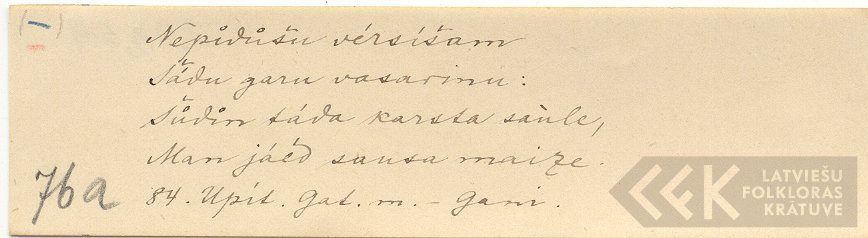 (–)
Nepůdůšu vérsíšam
Šádu garu vasarinu:
Šůdin táda karsta saùle,
Man jáéd sausa maize.
76a
84. Upít. Gat. m. – Gani.
LATVIEŠU
FOLKLORAS
KRĀTUVE